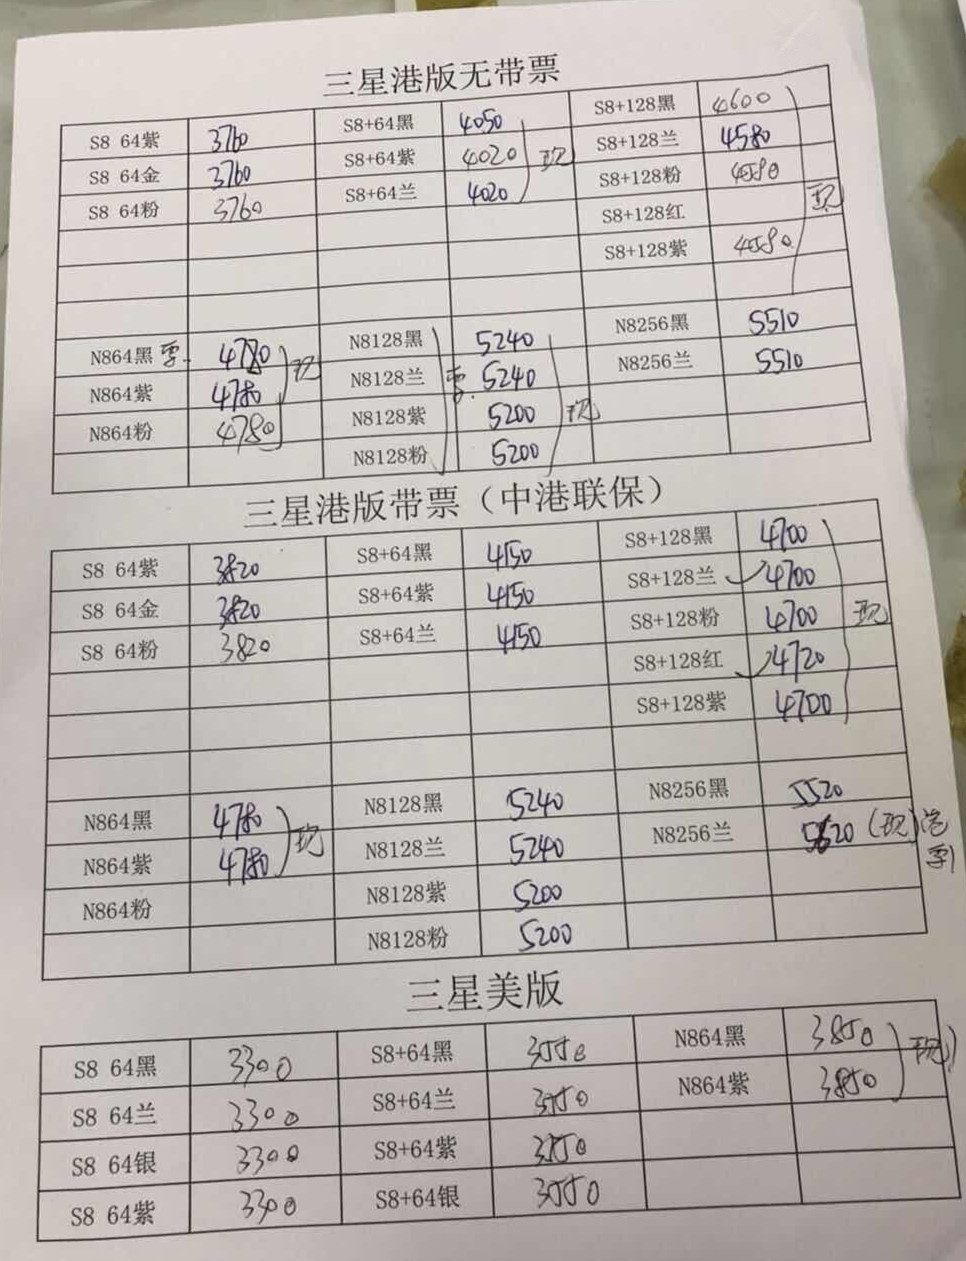 三星港版无带票
S8 64紫 3760 S8+64黑 4050 S8+128黑 4600
S8 64金 3760 S8+64紫 4020 现 S8+128兰 4580
S8 64粉 3760 S8+64兰 4020 S8+128粉 4580 现
S8+128红
S8+128紫 4580
N864黑 4780 现 N8128黑 5240 N8256黑 5510
N864紫 4780 N8128兰 5240 N8256兰 5510
N864粉 4780 N8128紫 5200 现
N8128粉 5200
三星港版带票（中港联保）
S8 64紫 3820 S8+64黑 4150 S8+128黑 4700
S8 64金 3820 S8+64紫 4150 S8+128兰 4700
S8 64粉 3820 S8+64兰 4150 S8+128粉 4700 现
S8+128红 4720
S8+128紫 4700
N864黑 4780 现 N8128黑 5240 N8256黑 5520
N864紫 4780 N8128兰 5240 N8256兰 5620 (现)
N864粉 N8128紫 5200
N8128粉 5200
三星美版
S8 64黑 3300 S8+64黑 3550 N864黑 3850 现
S8 64兰 3300 S8+64兰 3550 N864紫 3850
S8 64银 3300 S8+64紫 3550
S8 64紫 3300 S8+64银 3550